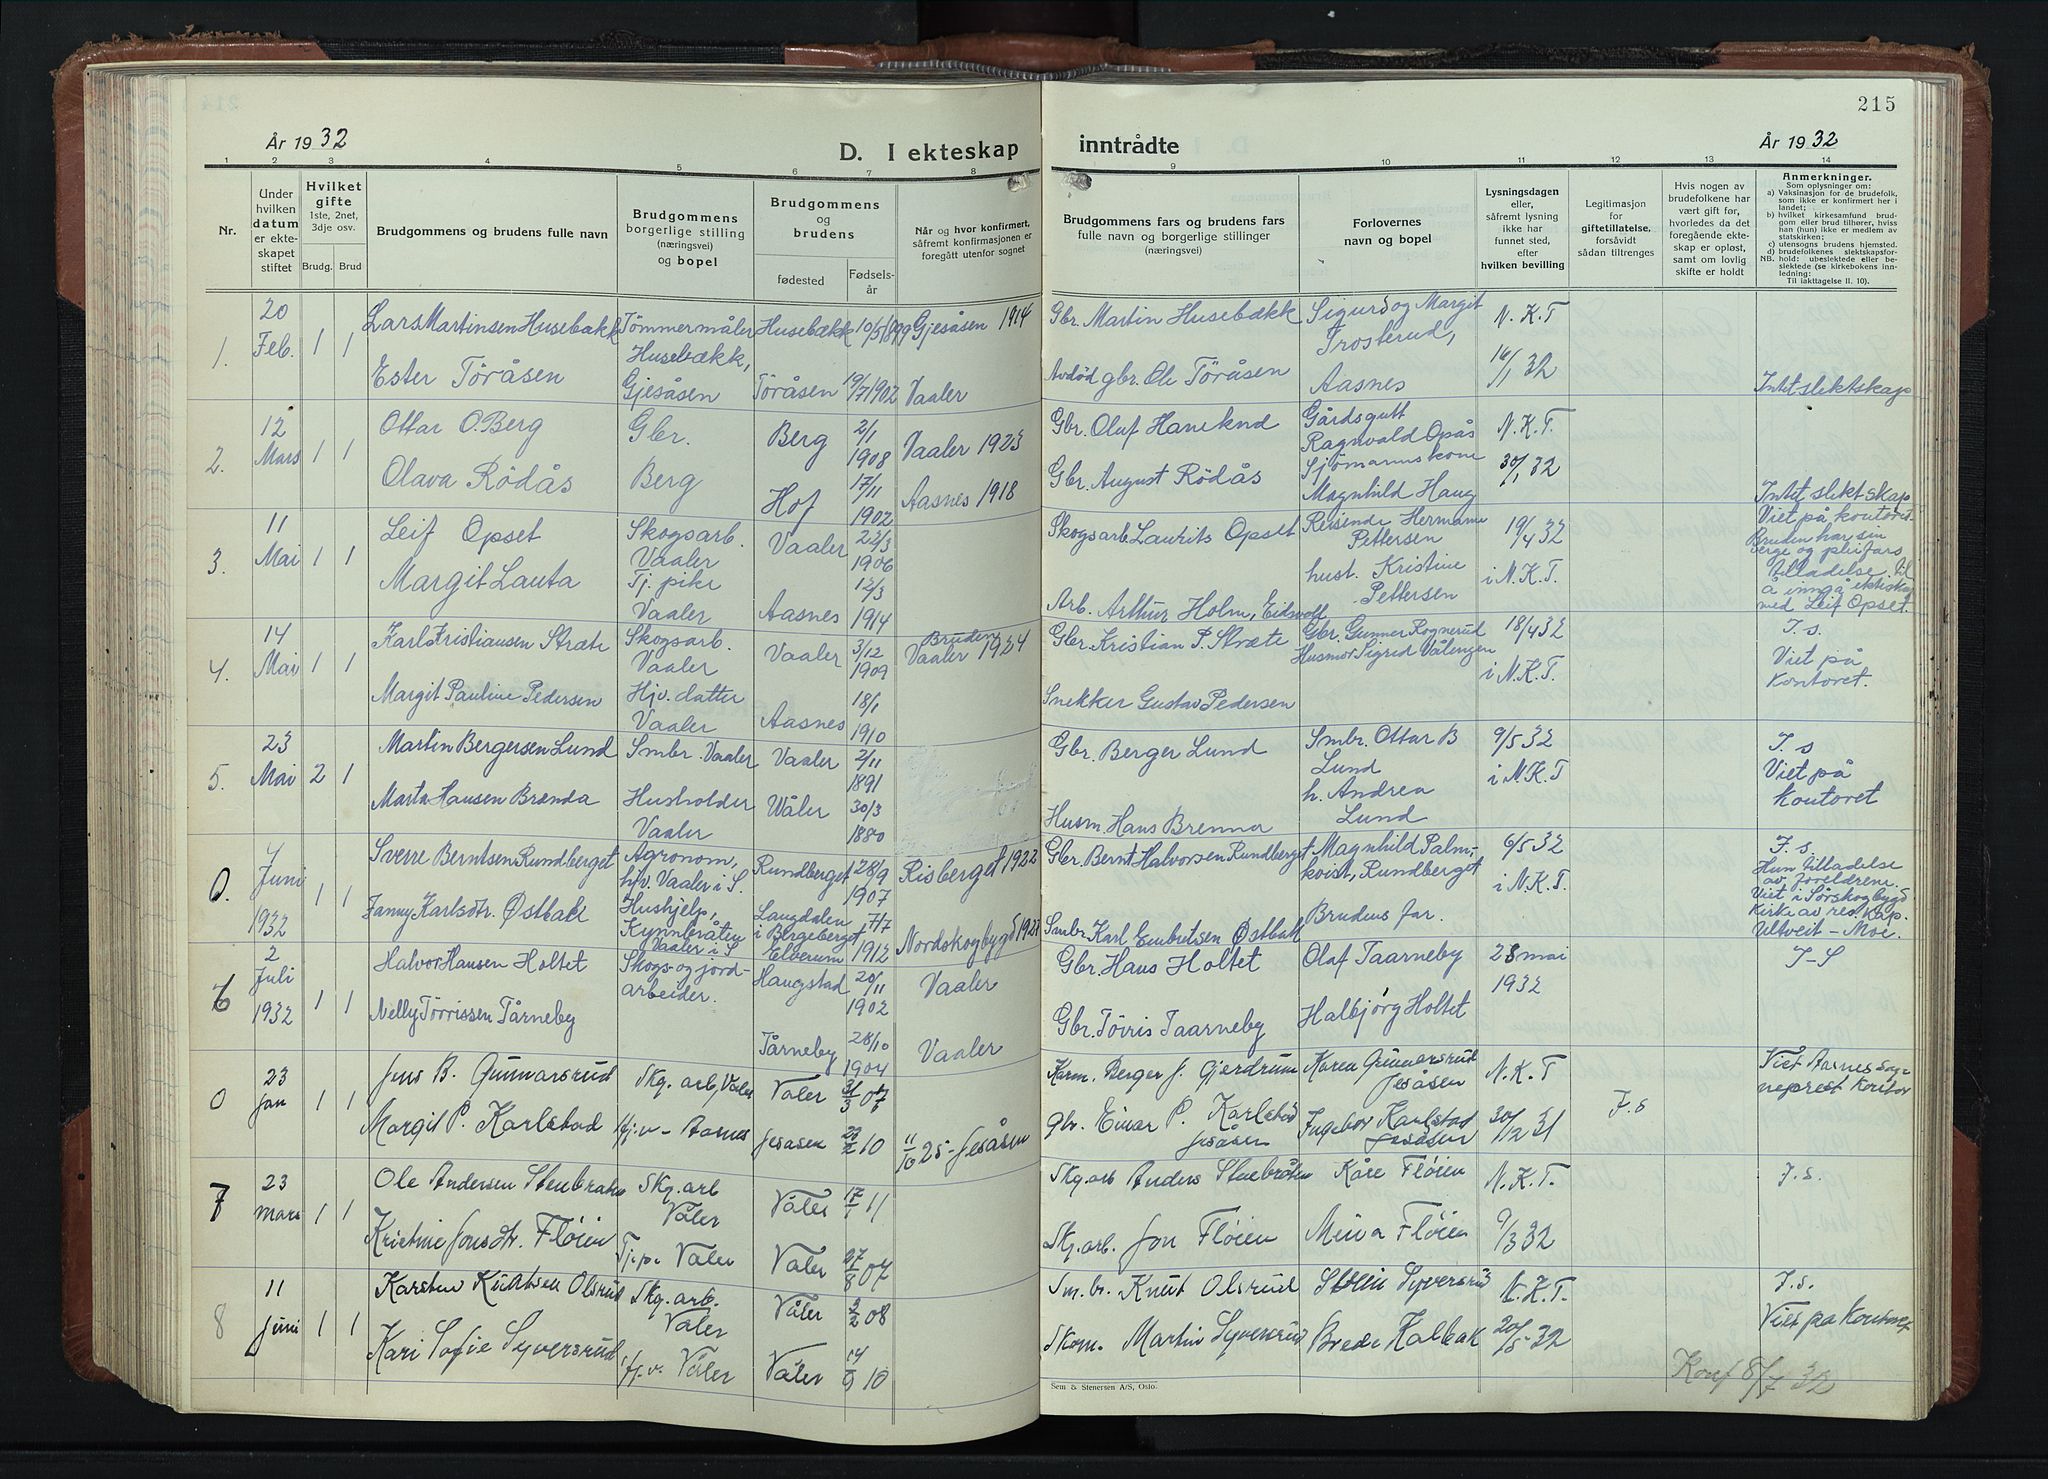 215
År 1932
D. I ekteskap inntrådte
År 1932
1 2 3 4 5 6 7 8 9 10 11 12 13 14
Nr.
Under hvilken datum er ekteskapet stiftet
Hvilket gifte
1ste, 2net, 3dje osv.
Brudg. Brud
Brudgommens og brudens fulle navn
Brudgommens borgerlige stilling (næringsvei) og bopel
Brudgommens og brudens
fødested
Fødselsår
Når og hvor konfirmert, såfremt konfirmasjonen er foregått utenfor sognet
Brudgommens fars og brudens fars fulle navn og borgerlige stillinger (næringsvei)
Forlovernes navn og bopel
Lysningsdagen eller, såfremt lysning ikke har funnet sted, efter hvilken bevilling
Legitimasjon for giftetillatelse, forsåvidt sådan tiltrenges
Hvis nogen av brudefolkene har vært gift før, hvorledes da det foregående ekteskap er opløst, samt om lovlig skifte er holdt
Anmerkninger.
Som oplysninger om:
a) Vaksinasjon for de brudefolk, som ikke er konfirmert her i landet;
b) hvilket kirkesamfund brudgom eller brud tilhører, hviss han (hun) ikke er medlem av statskirken;
c) utensogns brudens hjemsted.
d) brudefolkenes slektskapsforhold: ubeslektede eller beslektede (se kirkebokens innledning:
NB. Til iakttagelse II. 10).
1. 20 Feb. 1 1
Lars Martinsen Husebækk
Tømmermåler
Husebækk,
Gjesåsen
Husebækk 10/5 1899 Gjesåsen 1914
Ester Töråsen
Töråsen 19/7 1902 Vaaler
Gbr. Martin Husebækk
Avdöd gbr. Ole Töråsen
Sigurd og Margit
Trosterud,
Aasnes
N. K. T
16/1 32
Intet slektskap
2. 12 Mars 1 1
Ottar O. Berg
Gbr.
Berg
Berg 2/1 1908 Vaaler 1923
Olava Rödås
Hof 17/11 1902 Aasnes 1918
Gbr. Oluf Haneknd
Gbr. August Rödås
Gårdsgutt
Ragnvald Opås
Sjömannskone
Magnhild Haug
N. K. T.
30/1 32
Intet slektskap
3. 11 Mai 1 1
Leif Opset
Skogsarb.
Vaaler
Vaaler 23/3 1906
Margit Lauta
Tj. pike
Vaaler
Aasnes 12/3 1914
Skogsarb. Laurits Opset
Arb. Arthur Holm, Eidsvoll
Reisende Hermann
Pettersen
hust. Kristine
Pettersen
19/4 32
i N. K. T.
Viet på kontoret.
Bruden har sin
verge og pleifars
tilladelse til
å inngå ekteskap
med Leif Opset.
4. 14 Mai 1 1
Karl Kristiansen Stræte
Skogsarb.
Vaaler
Vaaler 3/12 1909
Bruden
Vaaler 1924
Margit Pauline Pedersen
Hjv. datter
Vaaler
Aasnes 18/1 1910
Gbr. Kristian P. Stræte
Snekker Gustav Pedersen
Gbr. Gunner Rognerud
Husmor Sigrid Vålengen
18/4 32
i N. K. T.
I. s.
Viet på
kontoret.
5. 23 Mai 2 1
Martin Bergersen Lund
Smbr. Vaaler
Vaaler 2/11 1891
Marta Hansen Brænda
Husholder
Vaaler
Våler 30/3 1880
Gbr. Berger Lund
Husm. Hans Brenna
Smbr. Ottar B
Lund
h. Andrea
Lund
9/5 32
i N. K. T
I. s
Viet på
kontoret
0. Juni 1932 1 1
Sverre Berntsen Rundberget
Agronom,
hjv. Vaaler i S.
Rundberget 28/9 1907 Risberget 1922
Fanny Karlsdtr. Østbak
Hushjelp,
Kynnbråten
Vaaler i S
Langdalen
i Bergeberget
Elverum 7/7 1912
Nordskogbygd
Gbr. Bernt Halvorsen Rundberget
Smbr. Karl Embretsen Østbak
Magnhild Palmkvist, Rundberget
Brudens far.
6/5 32
i N. K. T.
I. s.
Hun tilladelse
av foreldrene.
Viet i Sørskogbygd
Kirke av res. kap.
Ultveit - Moe.
6 2 Juli 1932 1 1
Halvor Hansen Holtet
Skogs- og jord-
arbeider.
Haugstad 20/11 1902 Vaaler
Nelly Törrissen Tårneby
Tårneby 28/10 1904 Vaaler
Gbr. Hans Holtet
Gbr. Töiris Taarneby
Olaf Taarneby
Halbjörg Holtet
28 mai
1932
I-S
0 23 jan 1 1
Jens B. Gunnarsrud
Skg. arb, Våler
Våler 31/3 07
Margit P. Karlstad
Hj.v - Aasnes
Jesåsen 10
11/10 25 - Jesåsen
Karm. Berger J. Gjerdrum
gbr. Einar P. Karlstad
Jesåsen
Karen Gunnarsrud
Jesåsen
Ingebor Karlstad
Jesåsen
N. K. T
30/12 31
I. s
Viet Aasnes sog-
neprest kontor
7 23 mars 1 1
Ole Andersen Stenbråten
Skg. arb
Våler
Våler 11
Kristine Jonsdtr. Fløien
Tj.p. Våler
Våler 27/8 07
Skg. arb Anders Stenbråten
Skg. arb. Jon Fløien
Kåre Fløien
Minva Fløien
N. K. T.
9/3 32
I. s.
8 11 Juni 1 1
Karsten Knutsen Olsrud
Skg. arb.
Våler
Våler 2/2 08
Kari Sofie Syversrud
Hj.v. Våler
Våler 10
Sm. br. Knut Olsrud
Skom. Martin Syversrud
Stein Syversrud
Brede Kalbak
N. K. T.
20/5 32
I. s.
Viet på kontoret
Konf 8/7 32
Sem & Stenersen A/S, Oslo.